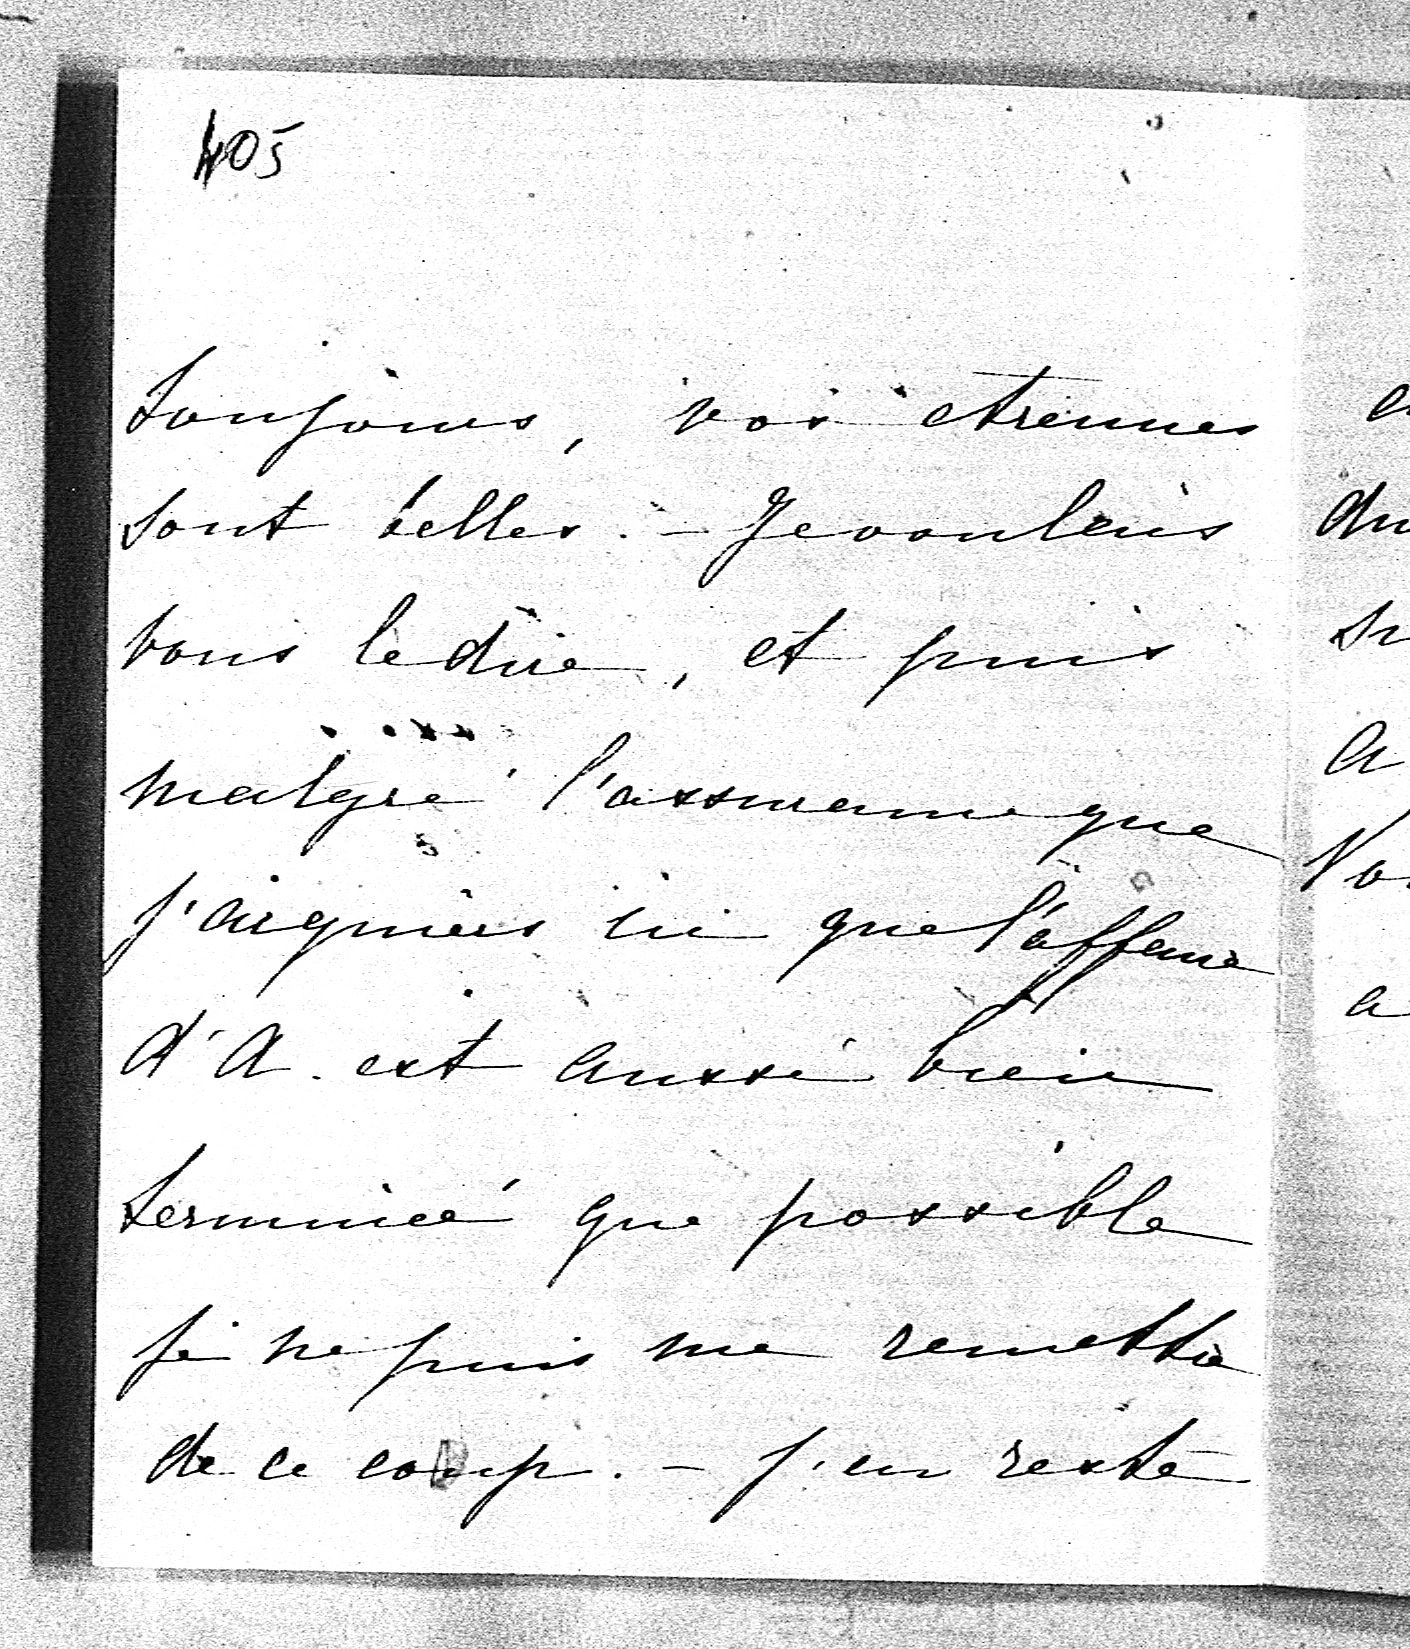 405
toujours, vos étrennes
sont belles. – Je voulais
vous le dire, et puis
malgré l'assurance que
j'acquiers ici que l'affaire
d'A. est aussi bien
terminée que possible
je ne puis me remettre
de ce coup. – J'en reste